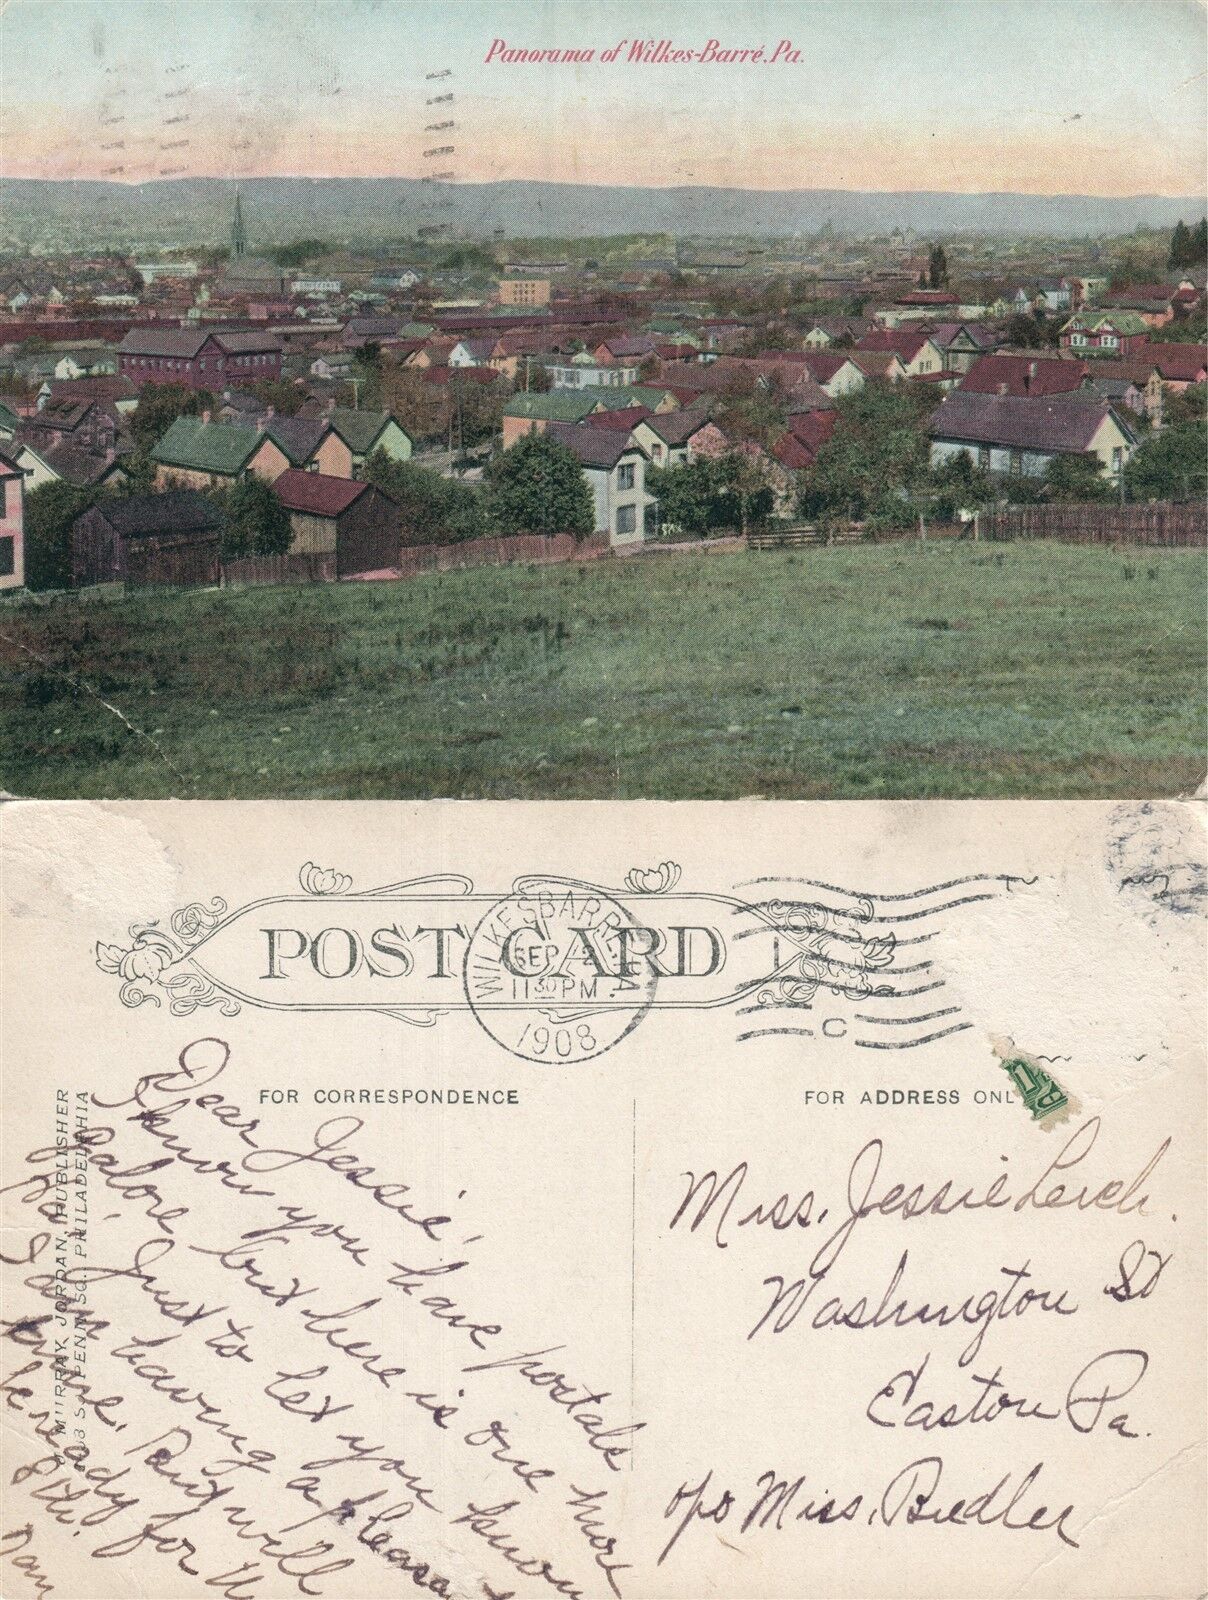 Panorama of Wilkes-Barré, Pa.
POST CARD
WILKESBARRE, PA.
SEP 2
11 30 PM
1908
C
FOR CORRESPONDENCE
FOR ADDRESS ONL
MURRAY JORDAN, PUBLISHER
S. PENN SQ. PHILADELPHIA
Dear Jessie,
I know you have postals
galore but here is one more
Just to let you know
I am having a pleasa
time. But will
be ready for
Miss. Jessie Lerch.
Washington St
Easton Pa.
c/o Miss. Bedler